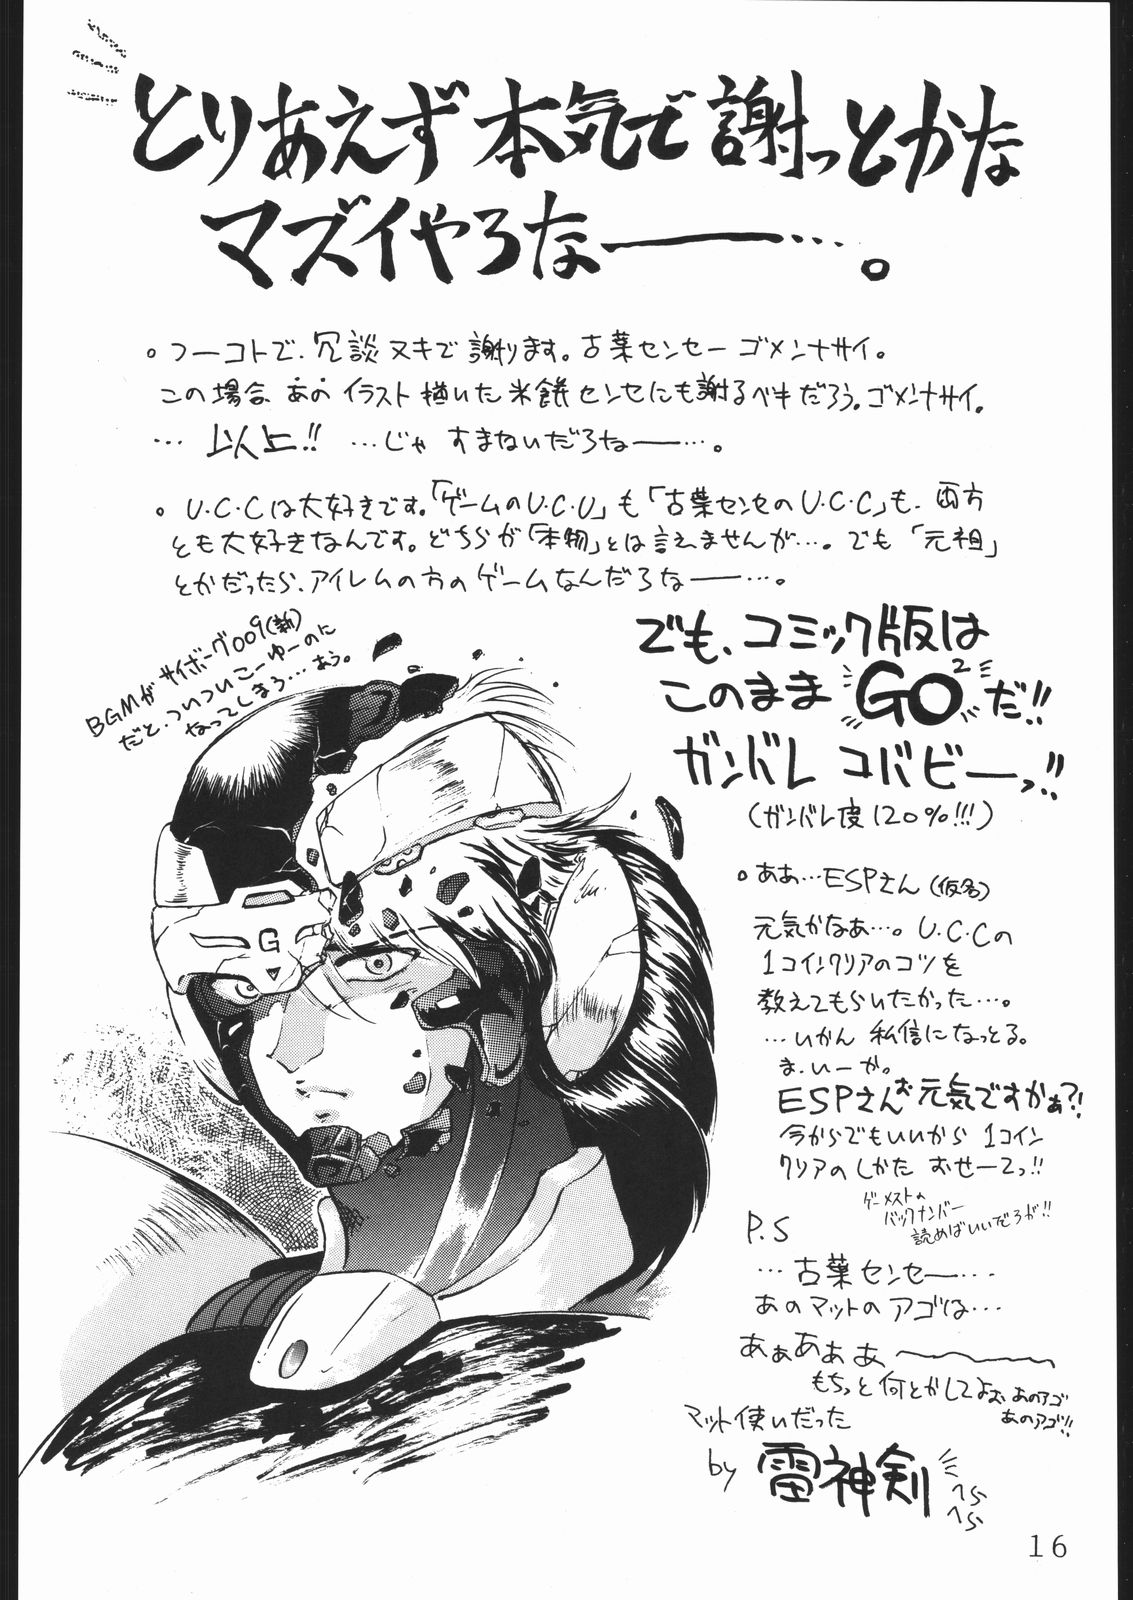 とりあえず本気で謝っとかな
マズイやろな――…。
。フーコトで、冗談ヌキで謝ります。古葉センセー ゴメンナサイ。
この場合、あのイラスト描いた米餅センセにも謝るベキだろう。ゴメンナサイ。
… 以上!! …じゃ すまねいだろな――…。
。U.C.Cは大好きです。「ゲームのU.C.U」も「古葉センセのU.C.C」も、両方
とも大好きなんです。どちらが「本物」とは言えませんが…。でも「元祖」
とかだったら、アイレムの方のゲームなんだろな――…。
BGMがサイボーグ009(新)
だと、ついついこーゆーのに
なってしまう…あぅ。
でも、コミック版は
このまま GO²だ!!
ガンバレ コバビーーっ!!
(ガンバレ度120%!!!)
。ああ…ESPさん(仮名)
元気かなあ…。U.C.Cの
1コインクリアのコツを
教えてもらいたかった…。
…いかん 私信になっとる。
ま、いーか。
ESPさんお元気ですかぁ?!
今からでもいいから 1コイン
クリアのしかた おせーてっ!!
ゲーメストの
バックナンバー
読めばいいだろが!!
P.S
… 古葉センセー…
あのマットのアゴは…
あぁあぁぁ、〜〜〜
もちっと何とかしてよぉ あのアゴ
あのアゴ!!
マット使いだった
by 雷神剣
へら
へら
G
16